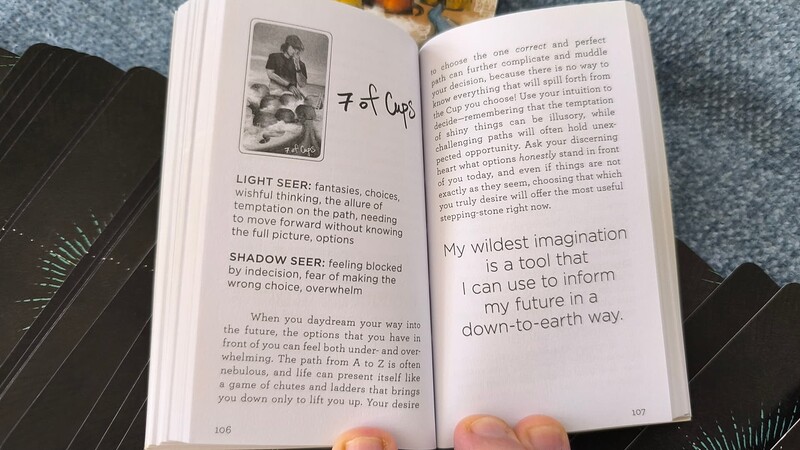 7 of Cups
7 of Cups
LIGHT SEER: fantasies, choices,
wishful thinking, the allure of
temptation on the path, needing
to move forward without knowing
the full picture, options
SHADOW SEER: feeling blocked
by indecision, fear of making the
wrong choice, overwhelm
When you daydream your way into
the future, the options that you have in
front of you can feel both under- and over-
whelming. The path from A to Z is often
nebulous, and life can present itself like
a game of chutes and ladders that brings
you down only to lift you up. Your desire
106
to choose the one correct and perfect
path can further complicate and muddle
your decision, because there is no way to
know everything that will spill forth from
the Cup you choose! Use your intuition to
decide—remembering that the temptation
of shiny things can be illusory, while
challenging paths will often hold unex-
pected opportunity. Ask your discerning
heart what options honestly stand in front
of you today, and even if things are not
exactly as they seem, choosing that which
you truly desire will offer the most useful
stepping-stone right now.
My wildest imagination
is a tool that
I can use to inform
my future in a
down-to-earth way.
107